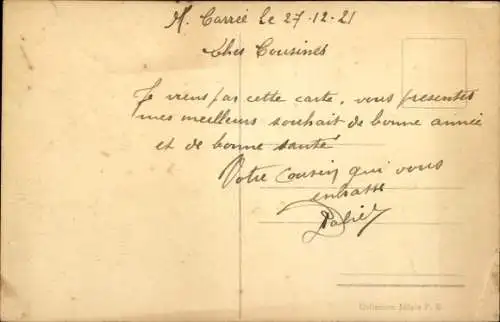 M. Carrié Le 27-12-21
Cher Cousines
Je viens par cette carte, vous presenter
mes meilleurs souhait de bonne année
et de bonne santé
Votre Cousin qui vous
enbrasse